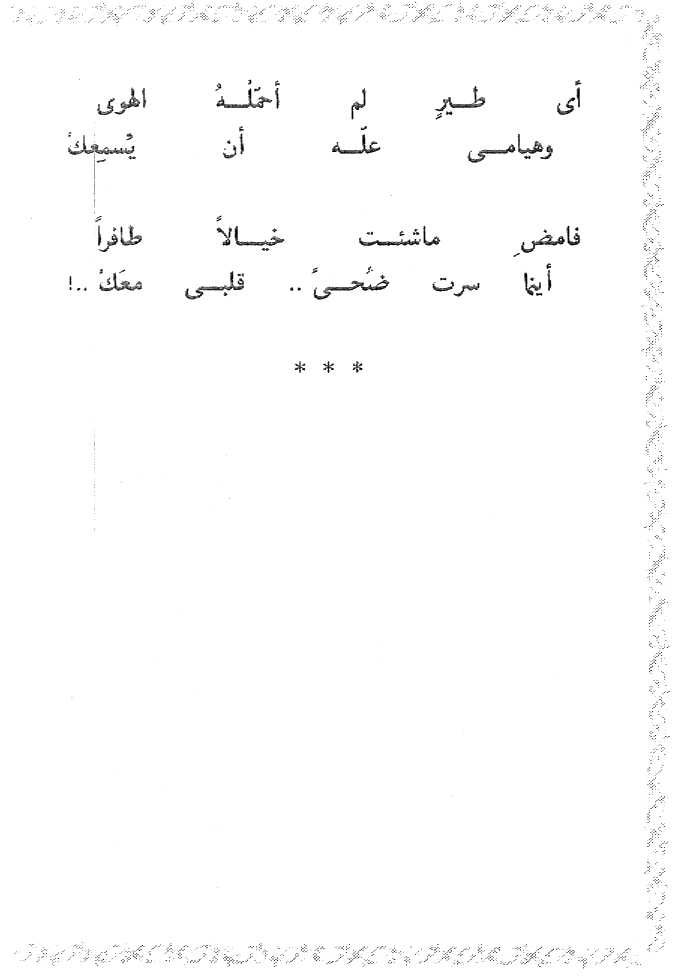 أى طـيرٍ لم أحمّلْـهُ الهوى
وهيامـى علّـه أن يُسمِعكْ
فامضِ ماشئـت خيـالاً طافراً
أينما سرت ضُحـىً .. قلبـى معَكْ ..!
* * *